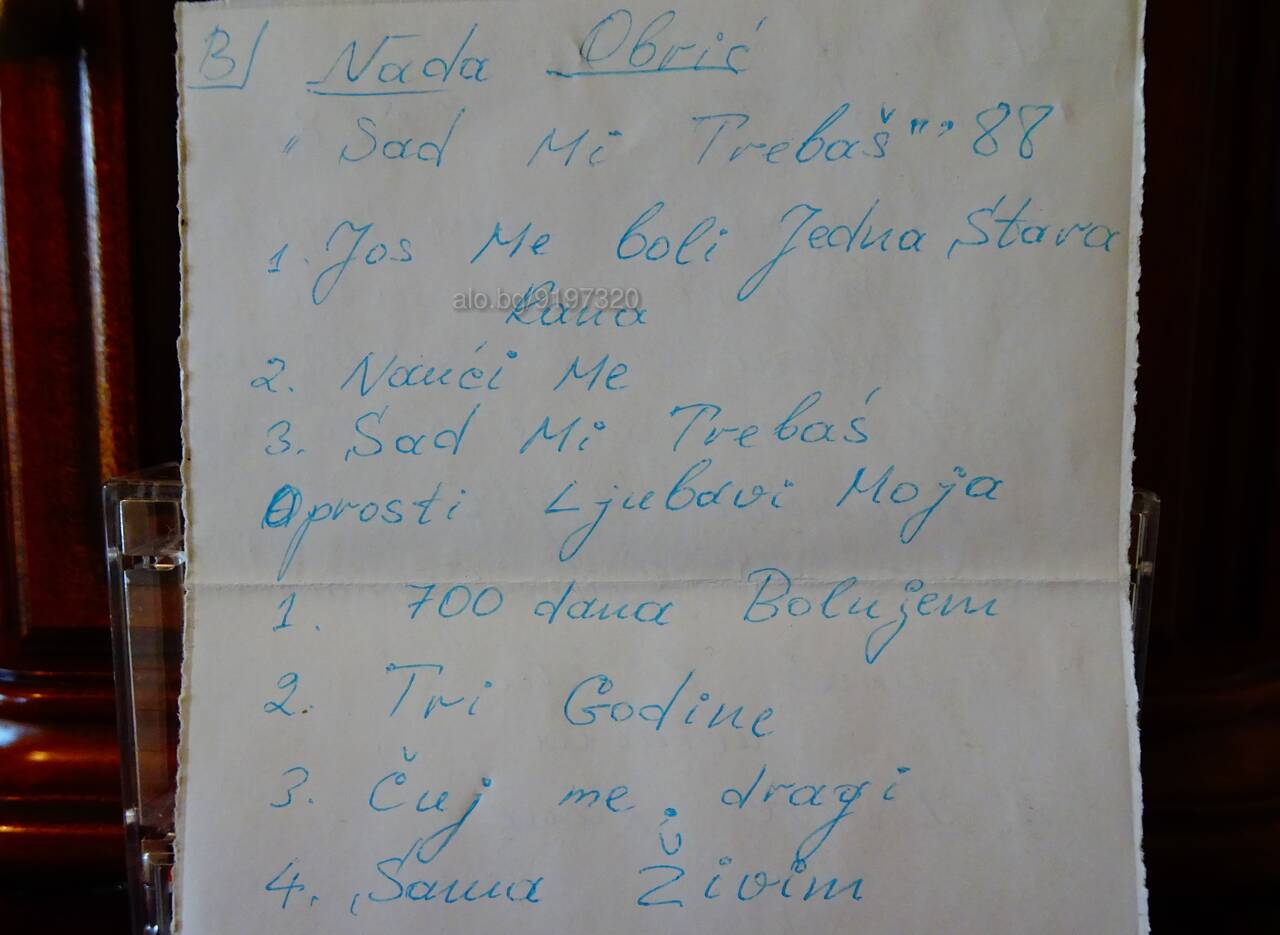 B/ Nada Obrić
" Sad Mi Trebaš", 88
1. Jos Me boli Jedna Stara
alo.bg/9197320
Rana
2. Naući Me
3. Sad Mi Trebaś
Oprosti Ljubavi Moja
1. 700 dana Bolujem
2. Tri Godine
3. Čuj me dragi
4. Sama Živim